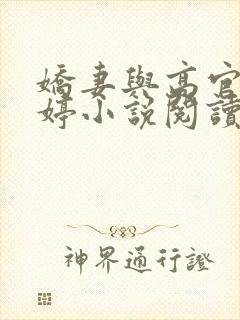 嬌妻與高官
婷小說閱讀
神界通行證